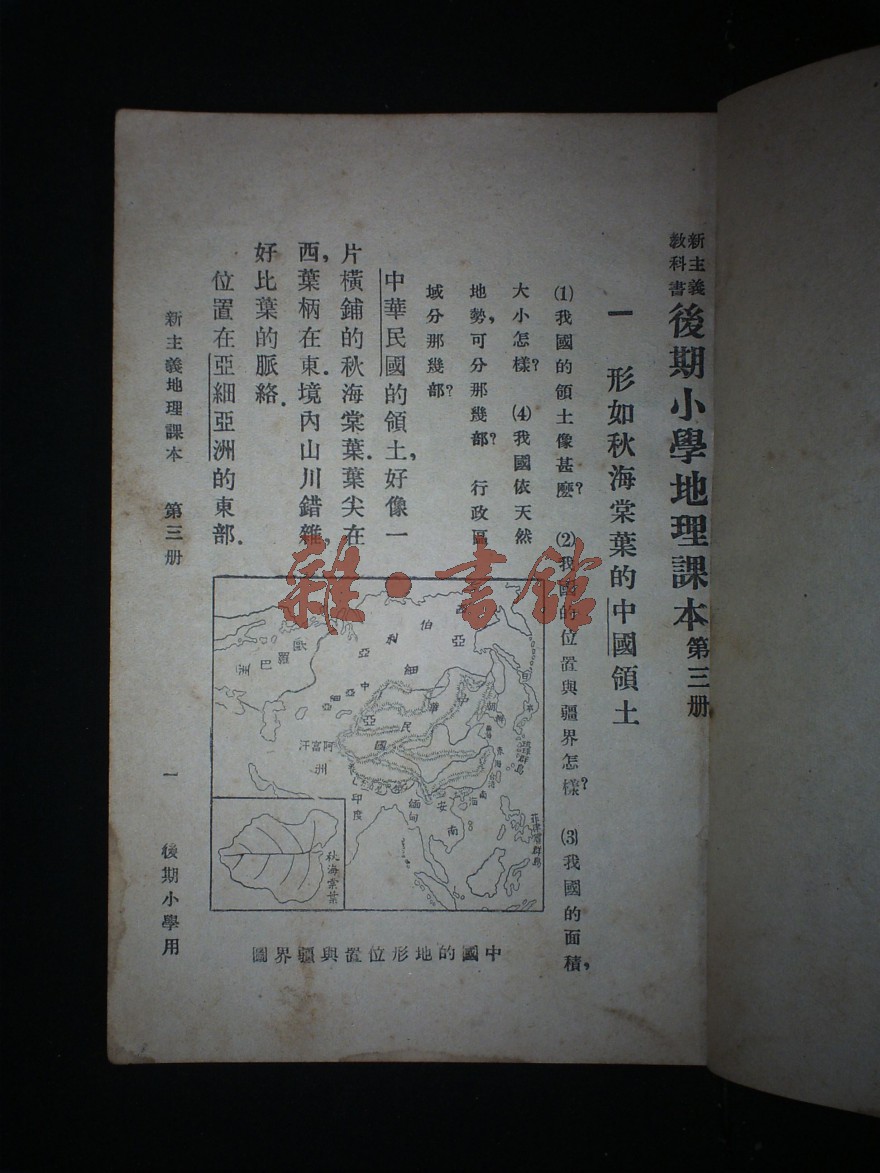 新主義
教科書
後期小學地理課本 第三册
一 形如秋海棠葉的中國領土
(1)我國的領土像甚麽？ (2)我國的位置與疆界怎樣？ (3)我國的面積，
大小怎樣？ (4)我國依天然
地勢，可分那幾部？ 行政區
域分那幾部？
中華民國的領土，好像一
片橫鋪的秋海棠葉．葉尖在
西，葉柄在東．境內山川錯雜，
好比葉的脈絡．
位置在亞細亞洲的東部．
雜·書館
西伯利亞
歐羅巴
亞細亞洲
中華民國
中亞細亞
阿富汗
印度
緬甸
安南
朝鮮
日本
東海
南海
台灣
菲律賓群島
秋海棠葉
中國的地形位置與疆界圖
新主義地理課本 第三册
一
後期小學用